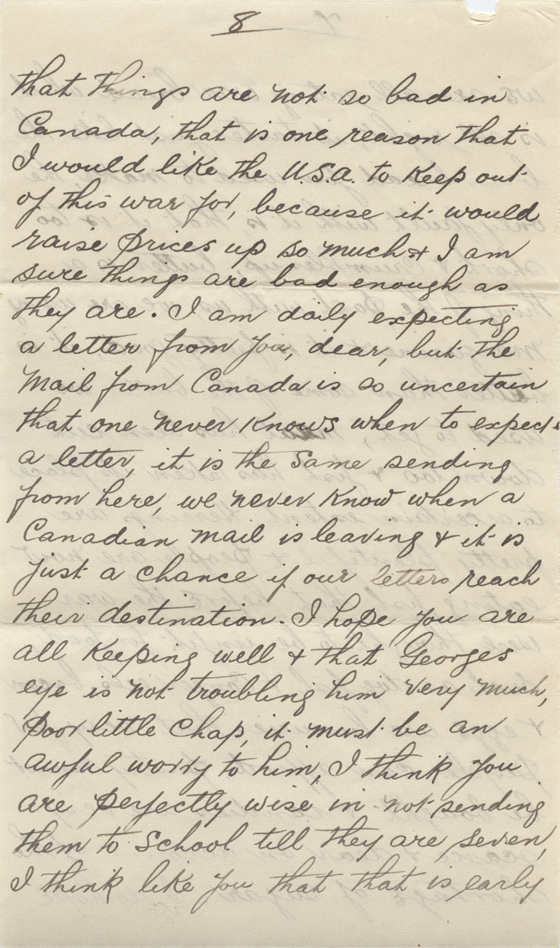 8
that things are not so bad in
Canada, that is one reason that
I would like the U.S.A. to keep out
of this war for, because it would
raise prices up so much & I am
sure things are bad enough as
they are. I am daily expecting
a letter from you, dear, but the
mail from Canada is so uncertain
that one never knows when to expect
a letter, it is the same sending
from here, we never know when a
Canadian mail is leaving & it is
just a chance if our letters reach
their destination. I hope you are
all keeping well & that Georges
eye is not troubling him very much,
poor little chap, it must be an
awful worry to him, I think you
are perfectly wise in not sending
them to School till they are seven,
I think like you that that is early